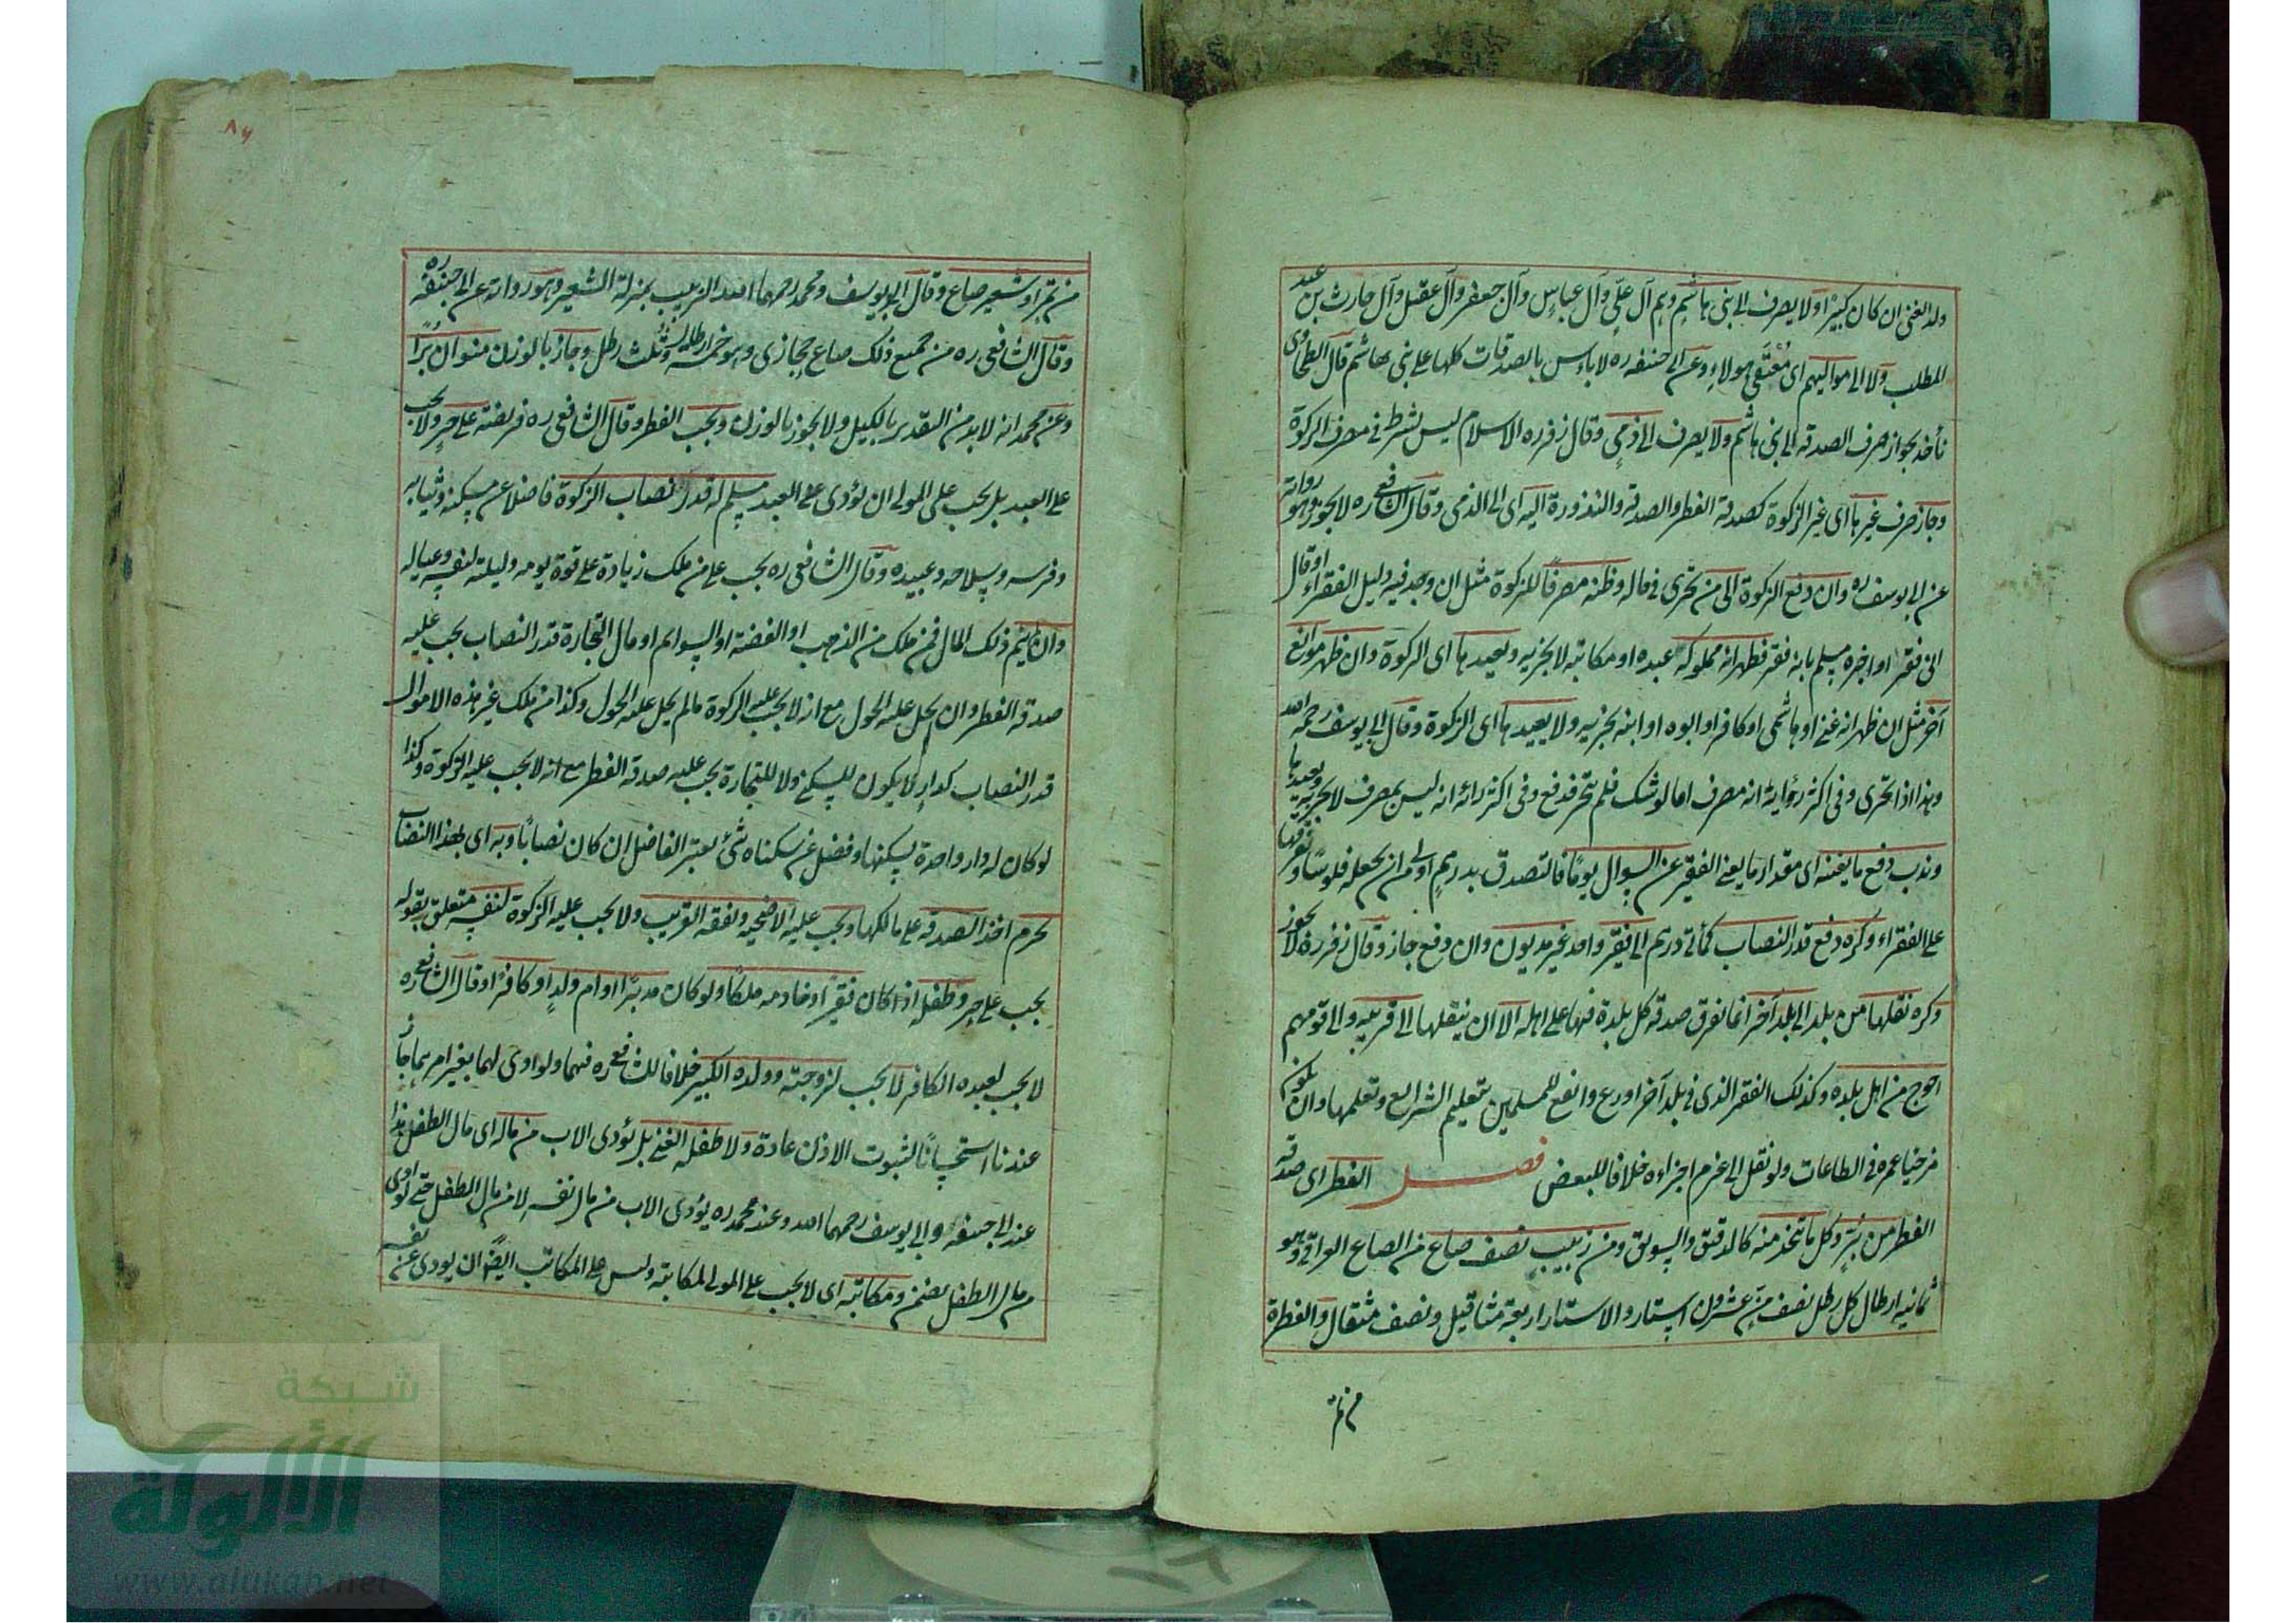 ولد الغنى ان كان كبيرًا ولا يصرف الى بنى هاشم وهم آل علىٍّ وآل عباسٍ وآل جعفر وآل عقيل وآل حارث بن عبد
المطلب ولا الى مواليهم اى مُعْتَقى هولاءِ وعن ابى حنيفه ره لا باس بالصدقات كلها على بنى هاشم قال الطحاوى
نأخذ بجواز صرف الصدقه الى بنى هاشم ولا يصرف الى ذمىٍ وقال زفر ره الاسلام ليس بشرط فى مصرف الزكوة
وجاز صرف غيرها اى غير الزكوة كصدقة الفطر والصدقه والمنذورة اليه اى الى الذمى وقال الشافعى ره لا يجوز وهو رواية
عن ابى يوسف ره وان دفع الزكوة الى من تحرى فى حاله وظنه مصرفًا للزكوة مثل ان وجد فيه دليل الفقراء او قال
انى فقير او اخبره مسلم بانه فقير فظهر انه مملوكه عبده او مكاتبه لا يجزيه ويعيدها اى الزكوة وان ظهر موانع
آخر مثل ان ظهر انه غنى او هاشمى او كافر او ابوه او ابنه يجزيه ولا يعيدها اى الزكوة وقال ابى يوسف رحمه الله
وهذا اذا تحرى وفى اكثر رؤاية انه مصرف اما لو شك فلم يتحر فدفع وفى اكثر رائه انه ليس بمصرف لا يجزيه ويعيدها
وندب دفع ما يغنيه اى مقدار ما يغنى الفقير عن السوال يومًا فالتصدق بدرهم اولى من ان يجعله فلوسًا وتفرقها
على الفقراء وكره دفع قدر النصاب كمأتى درهم الى فقير واحد غير مديون وان دفع جاز وقال زفر ره لا يجوز
وكره نقلها من بلد الى بلد آخر انما تفرق صدقه كل بلدة فيها على اهله الا ان ينقلها الى قريبه والى قومهم
احوج من اهل بلده وكذلك الفقير الذى فى بلد آخر اورع وانفع للمسلمين بتعليم الشرايع وتعلمها وان يكون
مزجيا عمره فى الطاعات ولو نقل الى غيرهم اجزاءه خلافا للبعض فصل الفطر اى صدقة
الفطر من بُرٍّ وكل ما يتخذ منه كالدقيق والسويق ومن زبيب نصف صاع من الصاع العراقى وهو
ثمانيه ارطال كل رطل نصف منٍّ عشرون استار والاستار اربعة مثاقيل ونصف مثقال والفطرة
من تمر
٨٦
من تمر او شعير صاع وقال ابو يوسف ومحمد رحمهما الله الزبيب بمنزلة الشعير وهو رواية عن ابى حنيفه ره
وقال الشافعى ره من جميع ذلك صاع حجازى وهو خمسة ارطال وثُلث رطل وجاز بالوزن منوان بُرًّا
وعن محمد انه لا بد من التقدير بالكيل ولا يجوز بالوزن ويجب الفطر وقال الشافعى ره فريضة على حرٍ ولا يجب
على العبد بل يجب على المولى ان يؤدى عن العبد مسلم له قدر نصاب الزكوة فاضلا عن مسكنه وثيابه
وفرسه وسلاحه وعبيده وقال الشافعى ره يجب على من ملك زيادة على قوة يومه وليلته لنفسه وعياله
وان لم ينم ذلك المال فمن ملك من الذهب او الفضة او السوائم او مال التجارة قدر النصاب يجب عليه
صدقه الفطر وان لم يحل عليه الحول مع انه لا يجب عليه الزكوة مالم يحل عليه الحول وكذا من ملك غير هذه الاموال
قدر النصاب كدارٍ لا يكون للسكنى ولا للتجارة يجب عليه صدقه الفطر مع انه لا يجب عليه الزكوة وكذا
لو كان له دار واحدة يسكنها وفضل عن سكناه شئ يعتبر الفاضل ان كان نصابًا وبه اى بهذا النصاب
تحرم اخذ الصدقه على مالكها ويجب عليه الاضحيه ونفقه القريب ولا يجب عليه الزكوة لنفسه متعلق بقوله
يجب على حرٍ وطفله اذا كان فقيرًا وخادمه ملكًا ولو كان مدبرًا او ام ولدٍ او كافرًا وقال الشافعى ره
لا يجب لعبده الكافر لا يجب لزوجته وولده الكبير خلافا للشافعى ره فيهما ولو ادى لهما بغير امرهما جاز
عندنا استحسانًا لثبوت الاذن عادة ولا طفله الغنى بل يؤدى الاب من ماله اى مال الطفل هذا
عند ابى حنيفه وابى يوسف رحمهما الله وعند محمد ره يؤدى الاب من مال نفسه لا من مال الطفل حتى لو ادى
من مال الطفل يضمن ومكاتبه اى لا يجب على المولى لمكاتبه وليس على المكاتب ايضًا ان يودى عن نفسه
شبكة
الألوكة
www.alukah.net